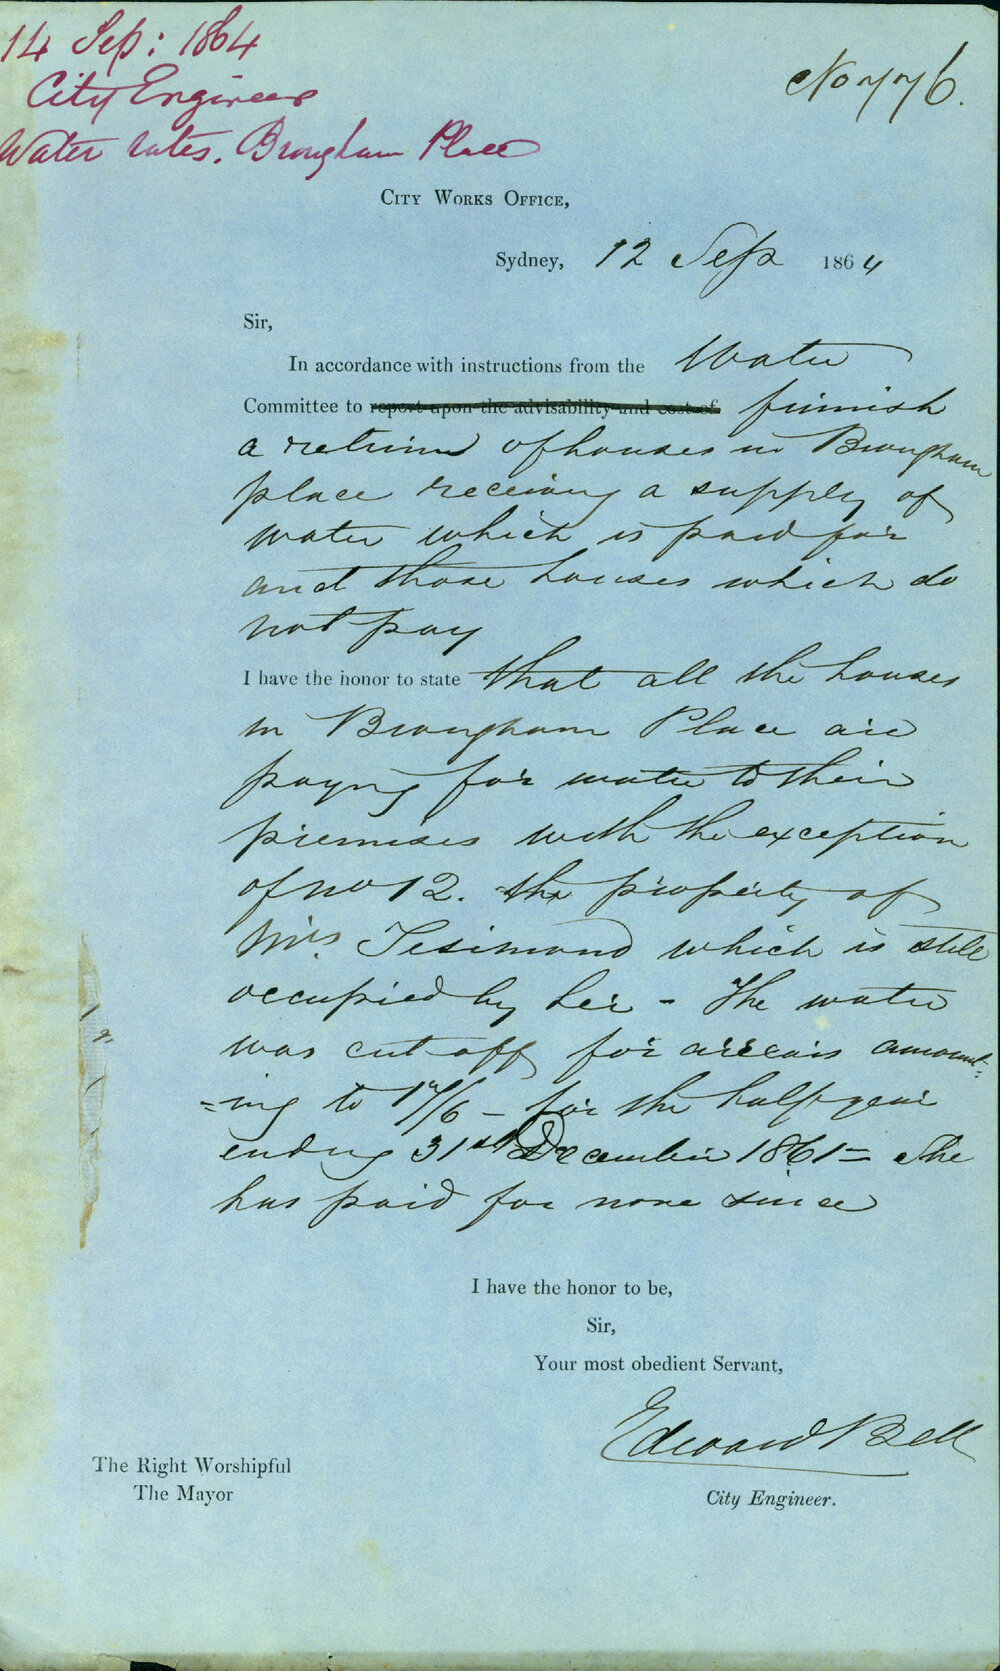 14 Sep: 1864
City Engineer
Water rates. Brougham Place
No 776.
City Works Office,
Sydney, 12 Sep 1864
Sir,
In accordance with instructions from the Water
Committee to report upon the advisability and cost of furnish
a return of houses in Brougham
place receiving a supply of
water which is paid for
and those houses which do
not pay
I have the honor to state that all the houses
in Brougham Place are
paying for water to their
premises with the exception
of no 12. the property of
Mrs. Tesimond which is still
occupied by her - The water
was cut off for arrears amount-
=ing to 17/6 - for the half year
ending 31st December 1861 = She
has paid for none since
I have the honor to be,
Sir,
Your most obedient Servant,
Edward Bell
City Engineer.
The Right Worshipful
The Mayor